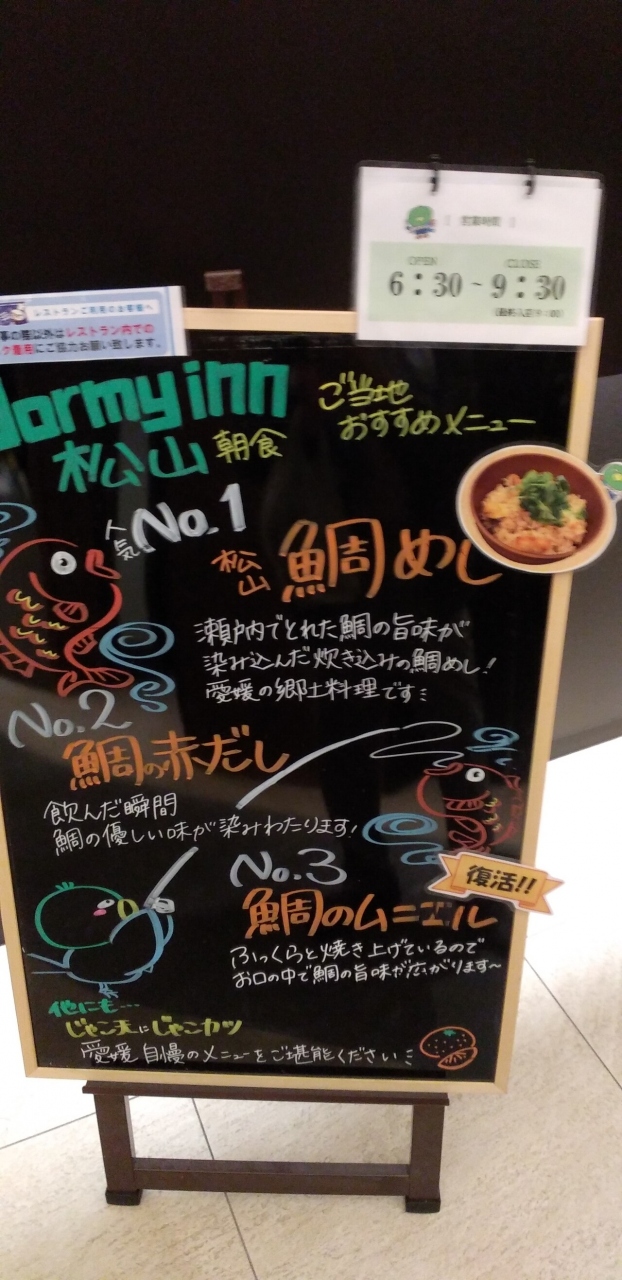 営業時間
OPEN CLOSE
6:30 ~ 9:30
(最終入店9:00)
レストランご利用のお客様へ
事の際以外はレストラン内での
ク着用にご協力お願い致します。
Dormy inn
松山 朝食
ご当地
おすすめメニュー
人気 No.1
松山 鯛めし
瀬戸内でとれた鯛の旨味が
染み込んだ炊き込みの鯛めし!
愛媛の郷土料理です
No.2
鯛の赤だし
飲んだ瞬間
鯛の優しい味が染みわたります!
No.3
復活!!
鯛のムニエル
ふっくらと焼き上げているので
お口の中で鯛の旨味が広がります~
他にも…
じゃこ天にじゃこカツ
愛媛自慢のメニューをご堪能ください